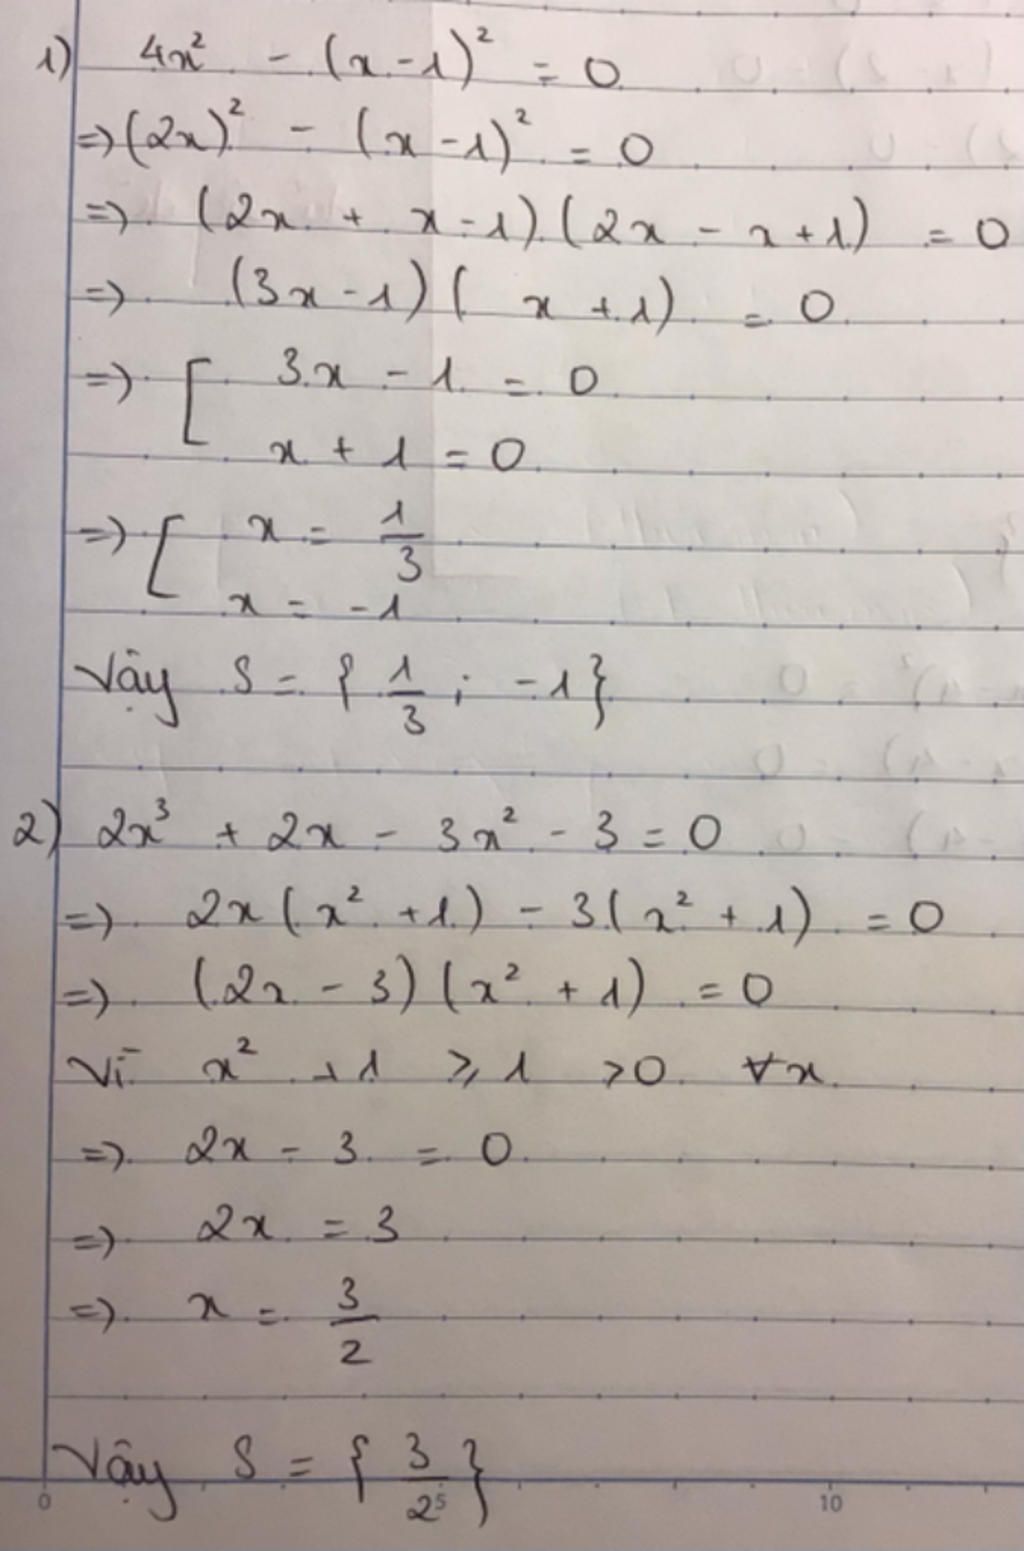 1) 4x² - (x-1)² = 0
=> (2x)² - (x-1)² = 0
=> (2x + x-1)(2x - x+1) = 0
=> (3x-1)(x+1) = 0
=> [ 3x - 1 = 0
x + 1 = 0
=> [ x = 1/3
x = -1
Vậy S = { 1/3 ; -1}
2) 2x³ + 2x - 3x² - 3 = 0
=> 2x(x² +1) - 3(x² + 1) = 0
=> (2x - 3)(x² + 1) = 0
Vì x² +1 ⩾ 1 >0 ∀x
=> 2x - 3 = 0
=> 2x = 3
=> x = 3/2
Vậy S = { 3/2 }
0 5 10